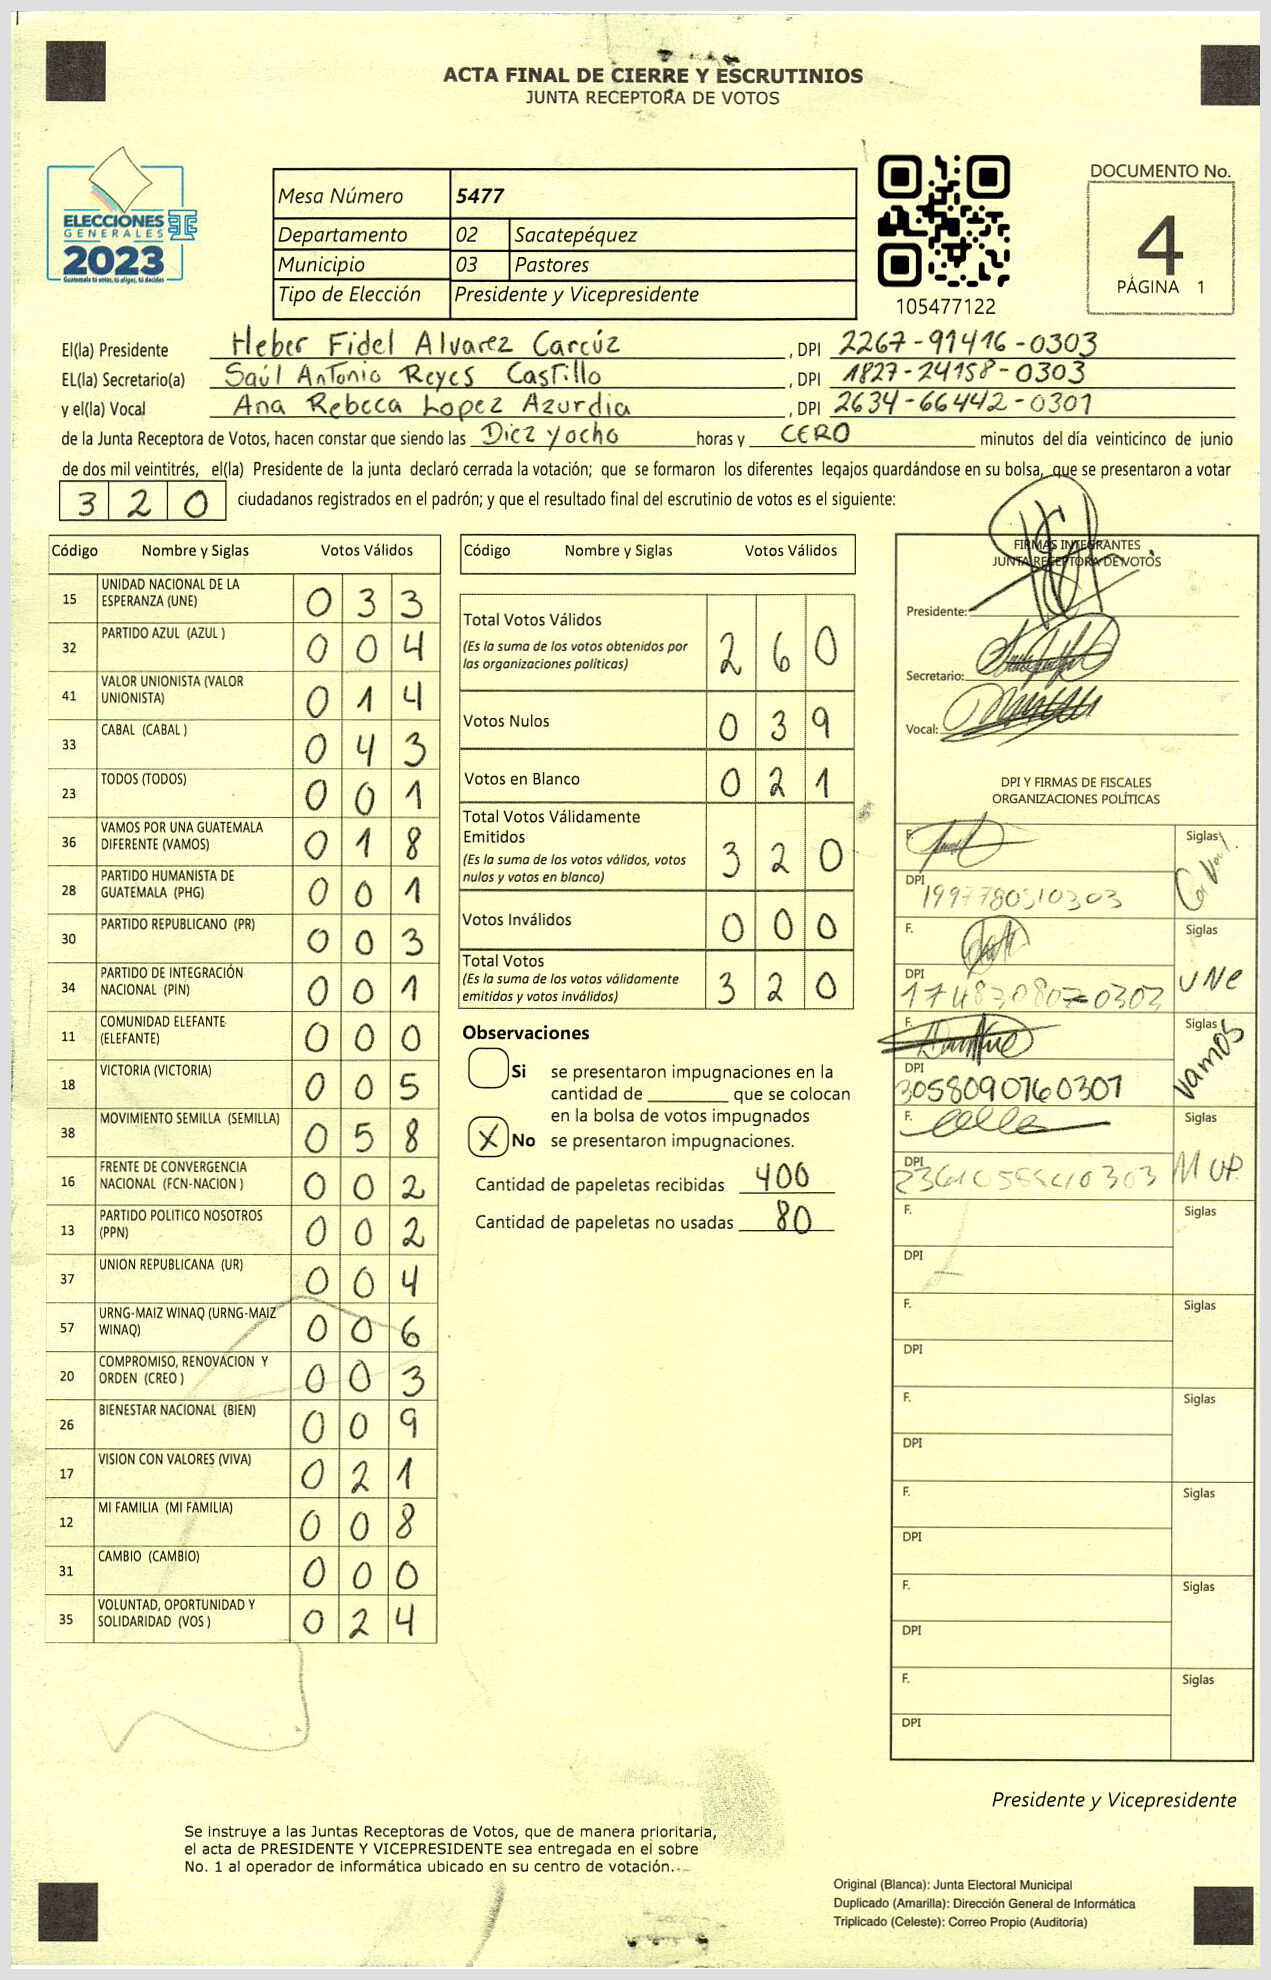 ACTA FINAL DE CIERRE Y ESCRUTINIOS
JUNTA RECEPTORA DE VOTOS
ELECCIONES
GENERALES
2023
Guatemala tú votas, tú eliges, tú decides
Mesa Número 5477
Departamento 02 Sacatepéquez
Municipio 03 Pastores
Tipo de Elección Presidente y Vicepresidente
105477122
DOCUMENTO No.
4
PÁGINA 1
El(la) Presidente Heber Fidel Alvarez Carcúz , DPI 2267-91416-0303
EL(la) Secretario(a) Saúl Antonio Reyes Castillo , DPI 1827-24158-0303
y el(la) Vocal Ana Rebeca Lopez Azurdia , DPI 2634-66442-0301
de la Junta Receptora de Votos, hacen constar que siendo las Diez y ocho horas y CERO minutos del día veinticinco de junio
de dos mil veintitrés, el(la) Presidente de la junta declaró cerrada la votación; que se formaron los diferentes legajos guardándose en su bolsa, que se presentaron a votar
320 ciudadanos registrados en el padrón; y que el resultado final del escrutinio de votos es el siguiente:
Código Nombre y Siglas Votos Válidos
15 UNIDAD NACIONAL DE LA ESPERANZA (UNE) 033
32 PARTIDO AZUL (AZUL ) 004
41 VALOR UNIONISTA (VALOR UNIONISTA) 014
33 CABAL (CABAL ) 043
23 TODOS (TODOS) 001
36 VAMOS POR UNA GUATEMALA DIFERENTE (VAMOS) 018
28 PARTIDO HUMANISTA DE GUATEMALA (PHG) 001
30 PARTIDO REPUBLICANO (PR) 003
34 PARTIDO DE INTEGRACIÓN NACIONAL (PIN) 001
11 COMUNIDAD ELEFANTE (ELEFANTE) 000
18 VICTORIA (VICTORIA) 005
38 MOVIMIENTO SEMILLA (SEMILLA) 058
16 FRENTE DE CONVERGENCIA NACIONAL (FCN-NACION ) 002
13 PARTIDO POLITICO NOSOTROS (PPN) 002
37 UNION REPUBLICANA (UR) 004
57 URNG-MAIZ WINAQ (URNG-MAIZ WINAQ) 006
20 COMPROMISO, RENOVACION Y ORDEN (CREO ) 003
26 BIENESTAR NACIONAL (BIEN) 009
17 VISION CON VALORES (VIVA) 021
12 MI FAMILIA (MI FAMILIA) 008
31 CAMBIO (CAMBIO) 000
35 VOLUNTAD, OPORTUNIDAD Y SOLIDARIDAD (VOS ) 024
Código Nombre y Siglas Votos Válidos
Total Votos Válidos 260
(Es la suma de los votos obtenidos por
las organizaciones políticas)
Votos Nulos 039
Votos en Blanco 021
Total Votos Válidamente
Emitidos 320
(Es la suma de los votos válidos, votos
nulos y votos en blanco)
Votos Inválidos 000
Total Votos 320
(Es la suma de los votos válidamente
emitidos y votos inválidos)
Observaciones
Si se presentaron impugnaciones en la
cantidad de ________ que se colocan
en la bolsa de votos impugnados
X No se presentaron impugnaciones.
Cantidad de papeletas recibidas 400
Cantidad de papeletas no usadas 80
FIRMAS INTEGRANTES
JUNTA RECEPTORA DE VOTOS
Presidente:
Secretario:
Vocal:
DPI Y FIRMAS DE FISCALES
ORGANIZACIONES POLÍTICAS
F. Siglas
DPI
F. Siglas UNe
DPI
F. Siglas Vamos
DPI 3058090760301
F. Siglas
DPI
F. Siglas
DPI
F. Siglas
DPI
F. Siglas
DPI
F. Siglas
DPI
F. Siglas
DPI
F. Siglas
DPI
Presidente y Vicepresidente
Se instruye a las Juntas Receptoras de Votos, que de manera prioritaria,
el acta de PRESIDENTE Y VICEPRESIDENTE sea entregada en el sobre
No. 1 al operador de informática ubicado en su centro de votación.
Original (Blanca): Junta Electoral Municipal
Duplicado (Amarilla): Dirección General de Informática
Triplicado (Celeste): Correo Propio (Auditoría)